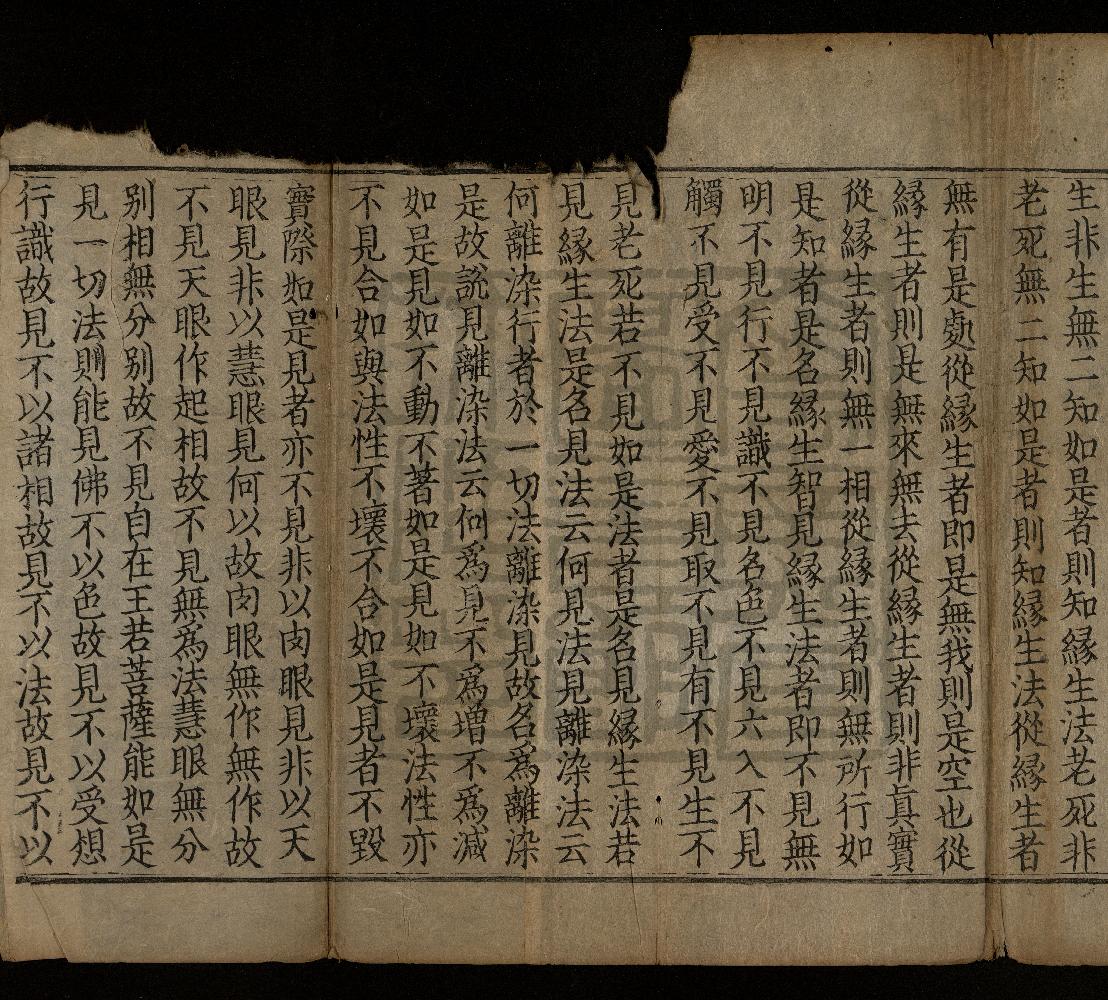 生非生無二知如是者則知縁生法老死非
老死無二知如是者則知縁生法從縁生者
無有是處從縁生者即是無我則是空也從
縁生者則是無來無去從縁生者則非眞實
從縁生者則無一相從縁生者則無所行如
是知者是名縁生智見縁生法者即不見無
明不見行不見識不見名色不見六入不見
觸不見受不見愛不見取不見有不見生不
見老死若不見如是法者是名見縁生法若
見縁生法是名見法云何見法見離染法云
何離染行者於一切法離染見故名爲離染
是故說見離染法云何爲見不爲增不爲減
如是見如不動不著如是見如不壞法性亦
不見合如與法性不壞不合如是見者不毀
實際如是見者亦不見非以肉眼見非以天
眼見非以慧眼見何以故肉眼無作無作故
不見天眼作起相故不見無爲法慧眼無分
別相無分別故不見自在王若菩薩能如是
見一切法則能見佛不以色故見不以受想
行識故見不以諸相故見不以法故見不以